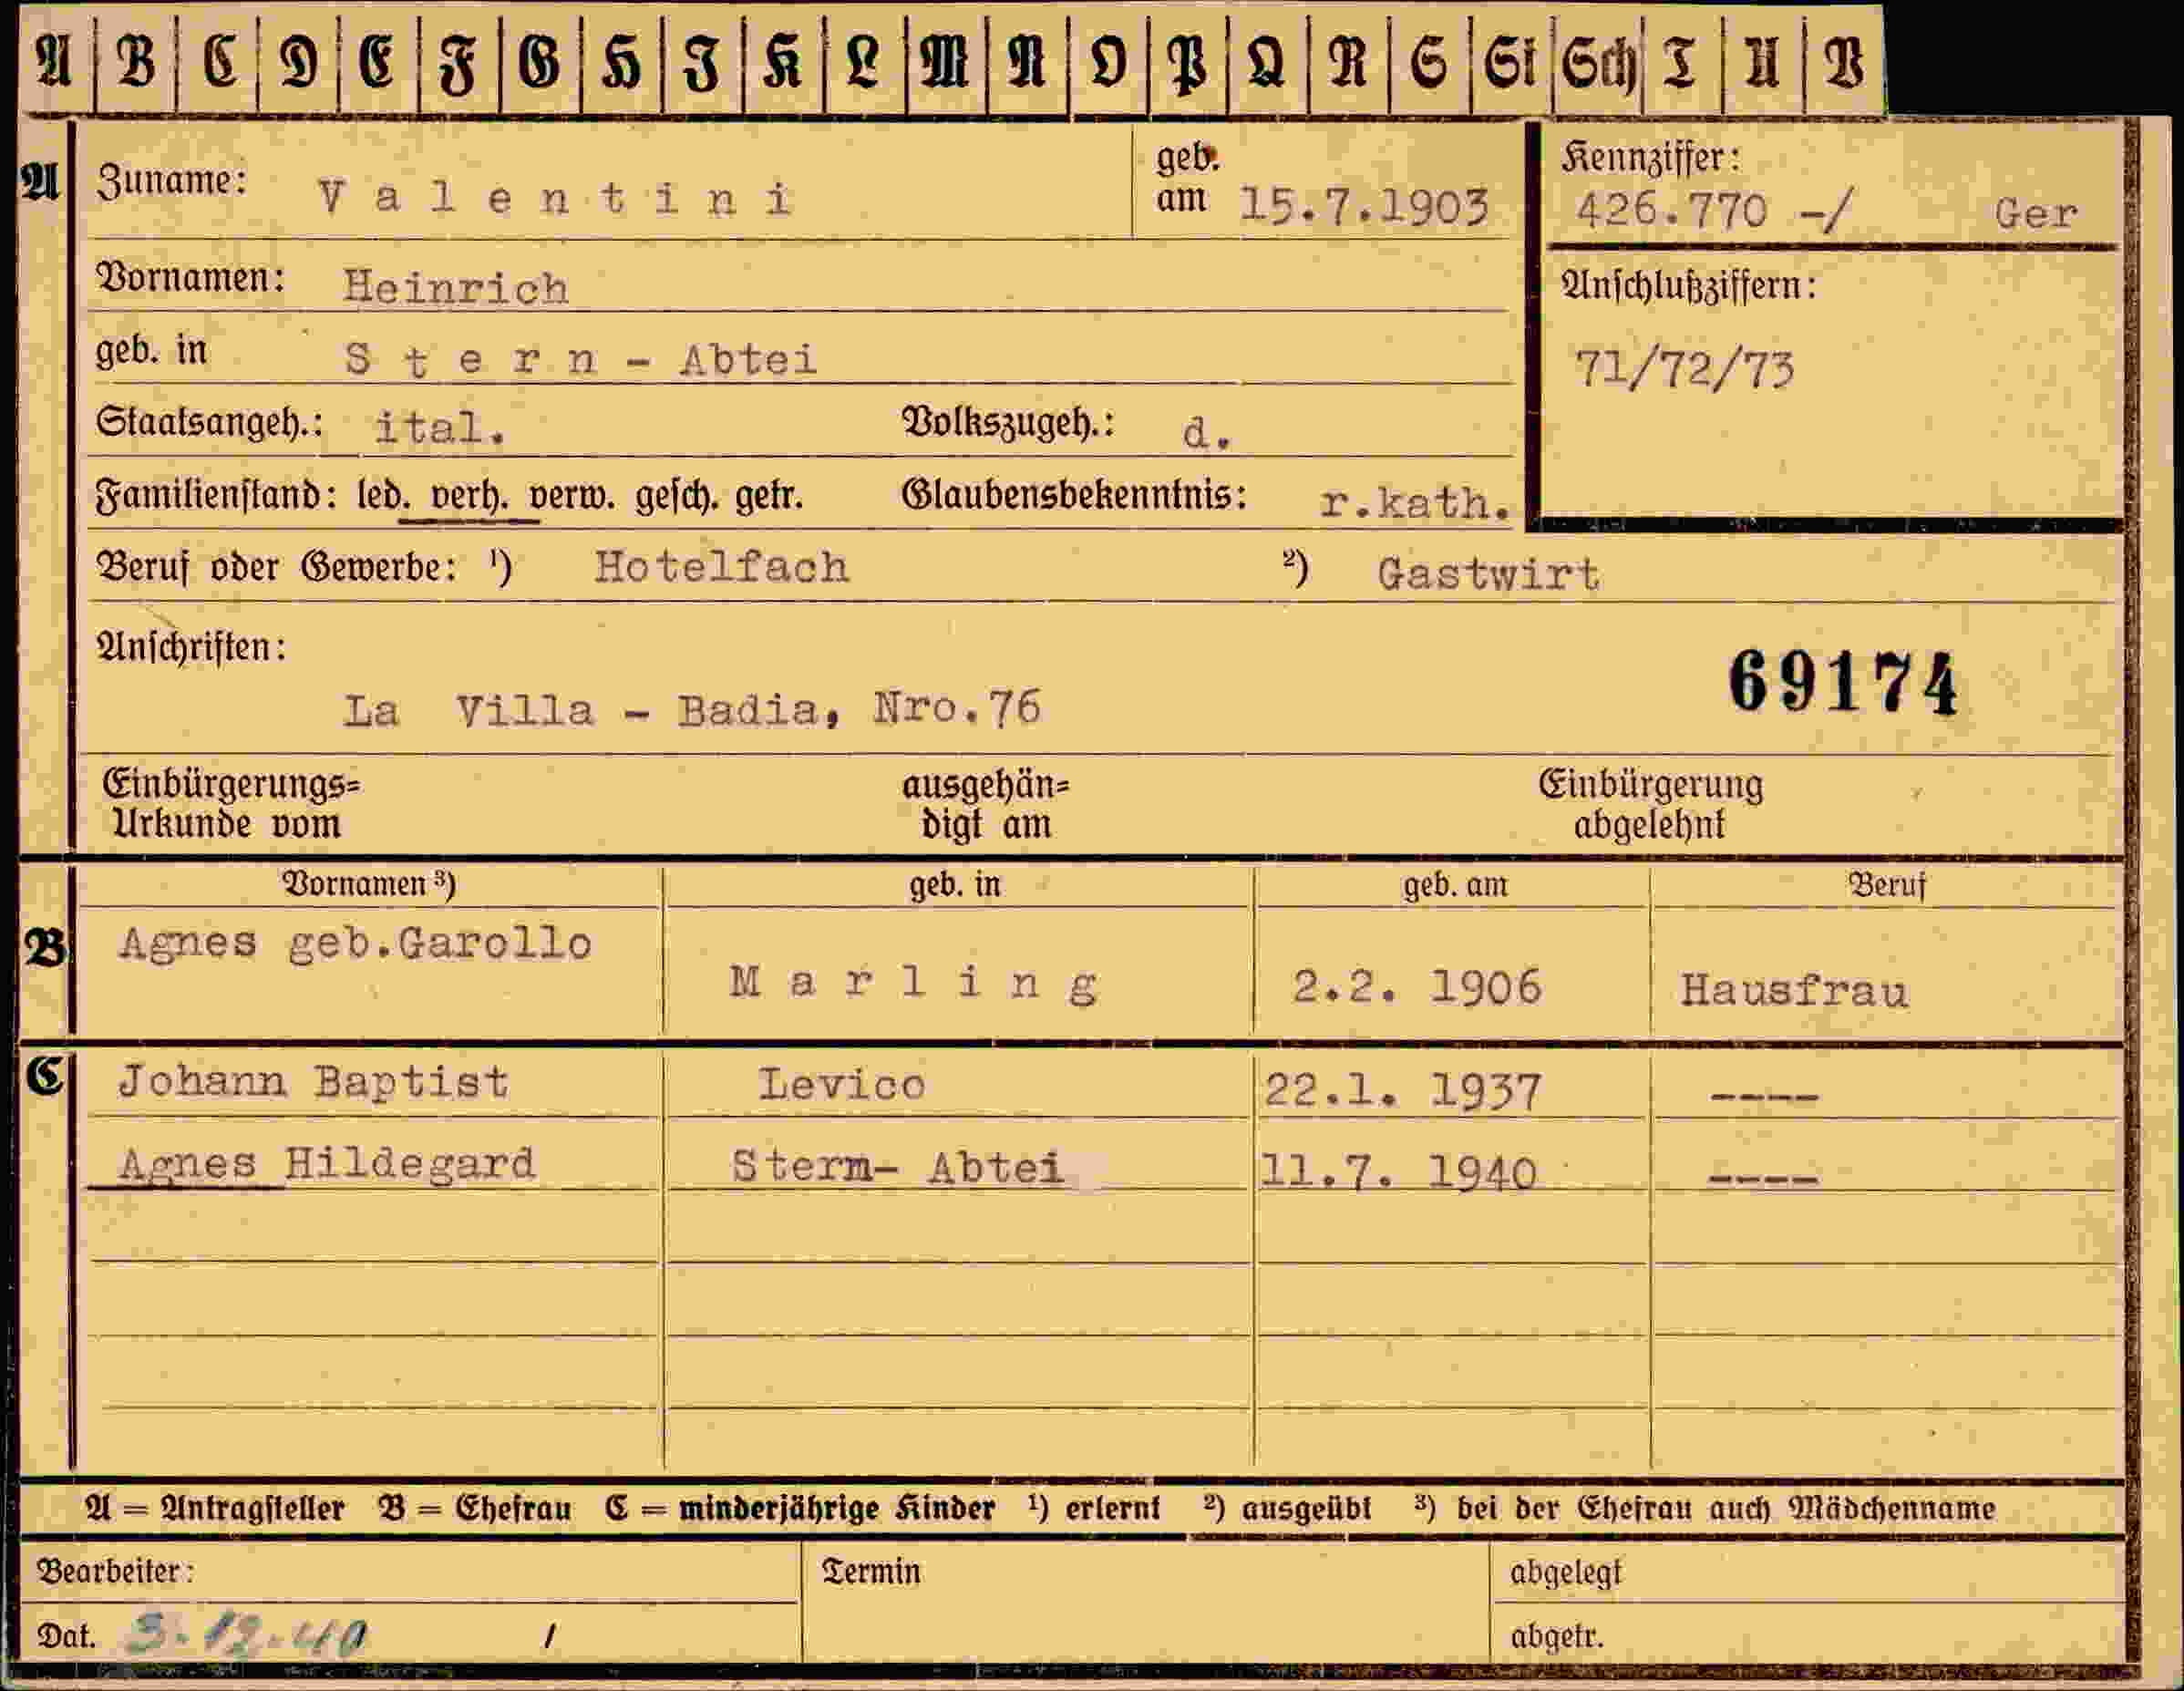 A B C D E F G H J K L M N O P Q R S St Sch T U V
A Zuname: V a l e n t i n i geb. am 15.7.1903 Kennziffer: 426.770 -/ Ger
Vornamen: Heinrich Anschlußziffern:
geb. in S t e r n - Abtei 71/72/73
Staatsangeh.: ital. Volkszugeh.: d.
Familienstand: led. verh. verw. gesch. getr. Glaubensbekenntnis: r.kath.
Beruf oder Gewerbe: ¹) Hotelfach ²) Gastwirt
Anschriften: 69174
La Villa - Badia, Nro.76
Einbürgerungs= ausgehän= Einbürgerung
Urkunde vom digt am abgelehnt
Vornamen ³) geb. in geb. am Beruf
B Agnes geb.Garollo
M a r l i n g 2.2. 1906 Hausfrau
C Johann Baptist Levico 22.1. 1937 ----
Agnes Hildegard Stern- Abtei 11.7. 1940 ----
A = Antragsteller B = Ehefrau C = minderjährige Kinder ¹) erlernt ²) ausgeübt ³) bei der Ehefrau auch Mädchenname
Bearbeiter: Termin abgelegt
Dat. 3.12.40 / abgetr.